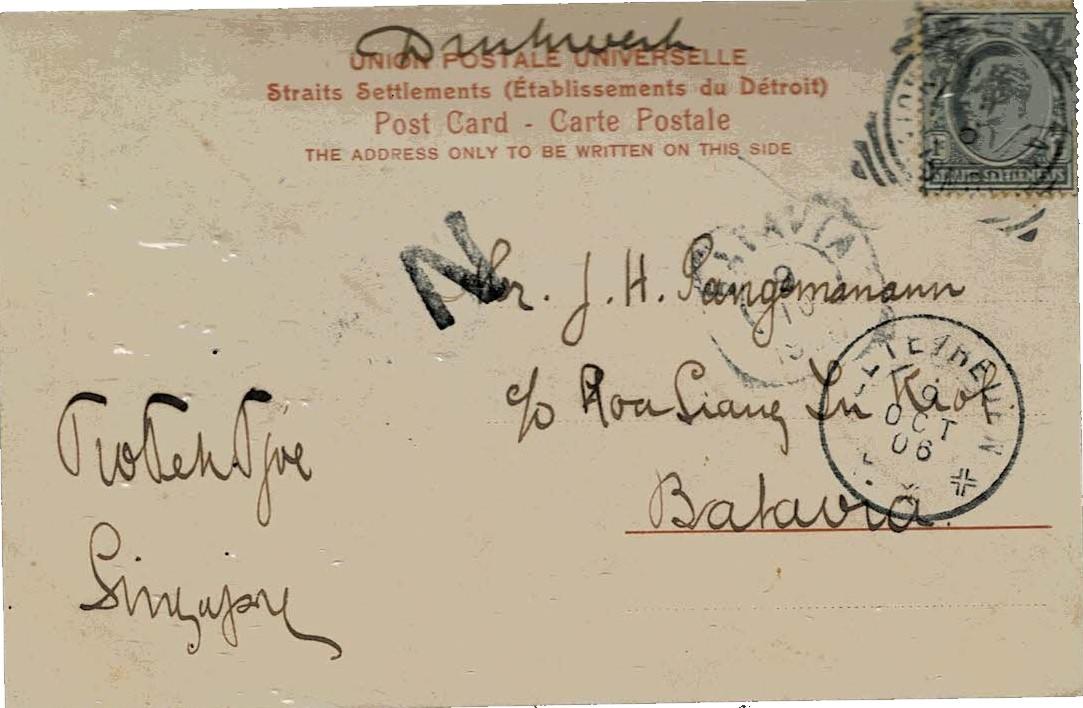 Drukwerk
UNION POSTALE UNIVERSELLE
Straits Settlements (Établissements du Détroit)
Post Card - Carte Postale
THE ADDRESS ONLY TO BE WRITTEN ON THIS SIDE
STRAITS SETTLEMENTS
BATAVIA
N
J. H. Pangemanann
c/o Hoa Siang In Kiok
OCT
06
Batavia
Tio Tek Tjoe
Singapore